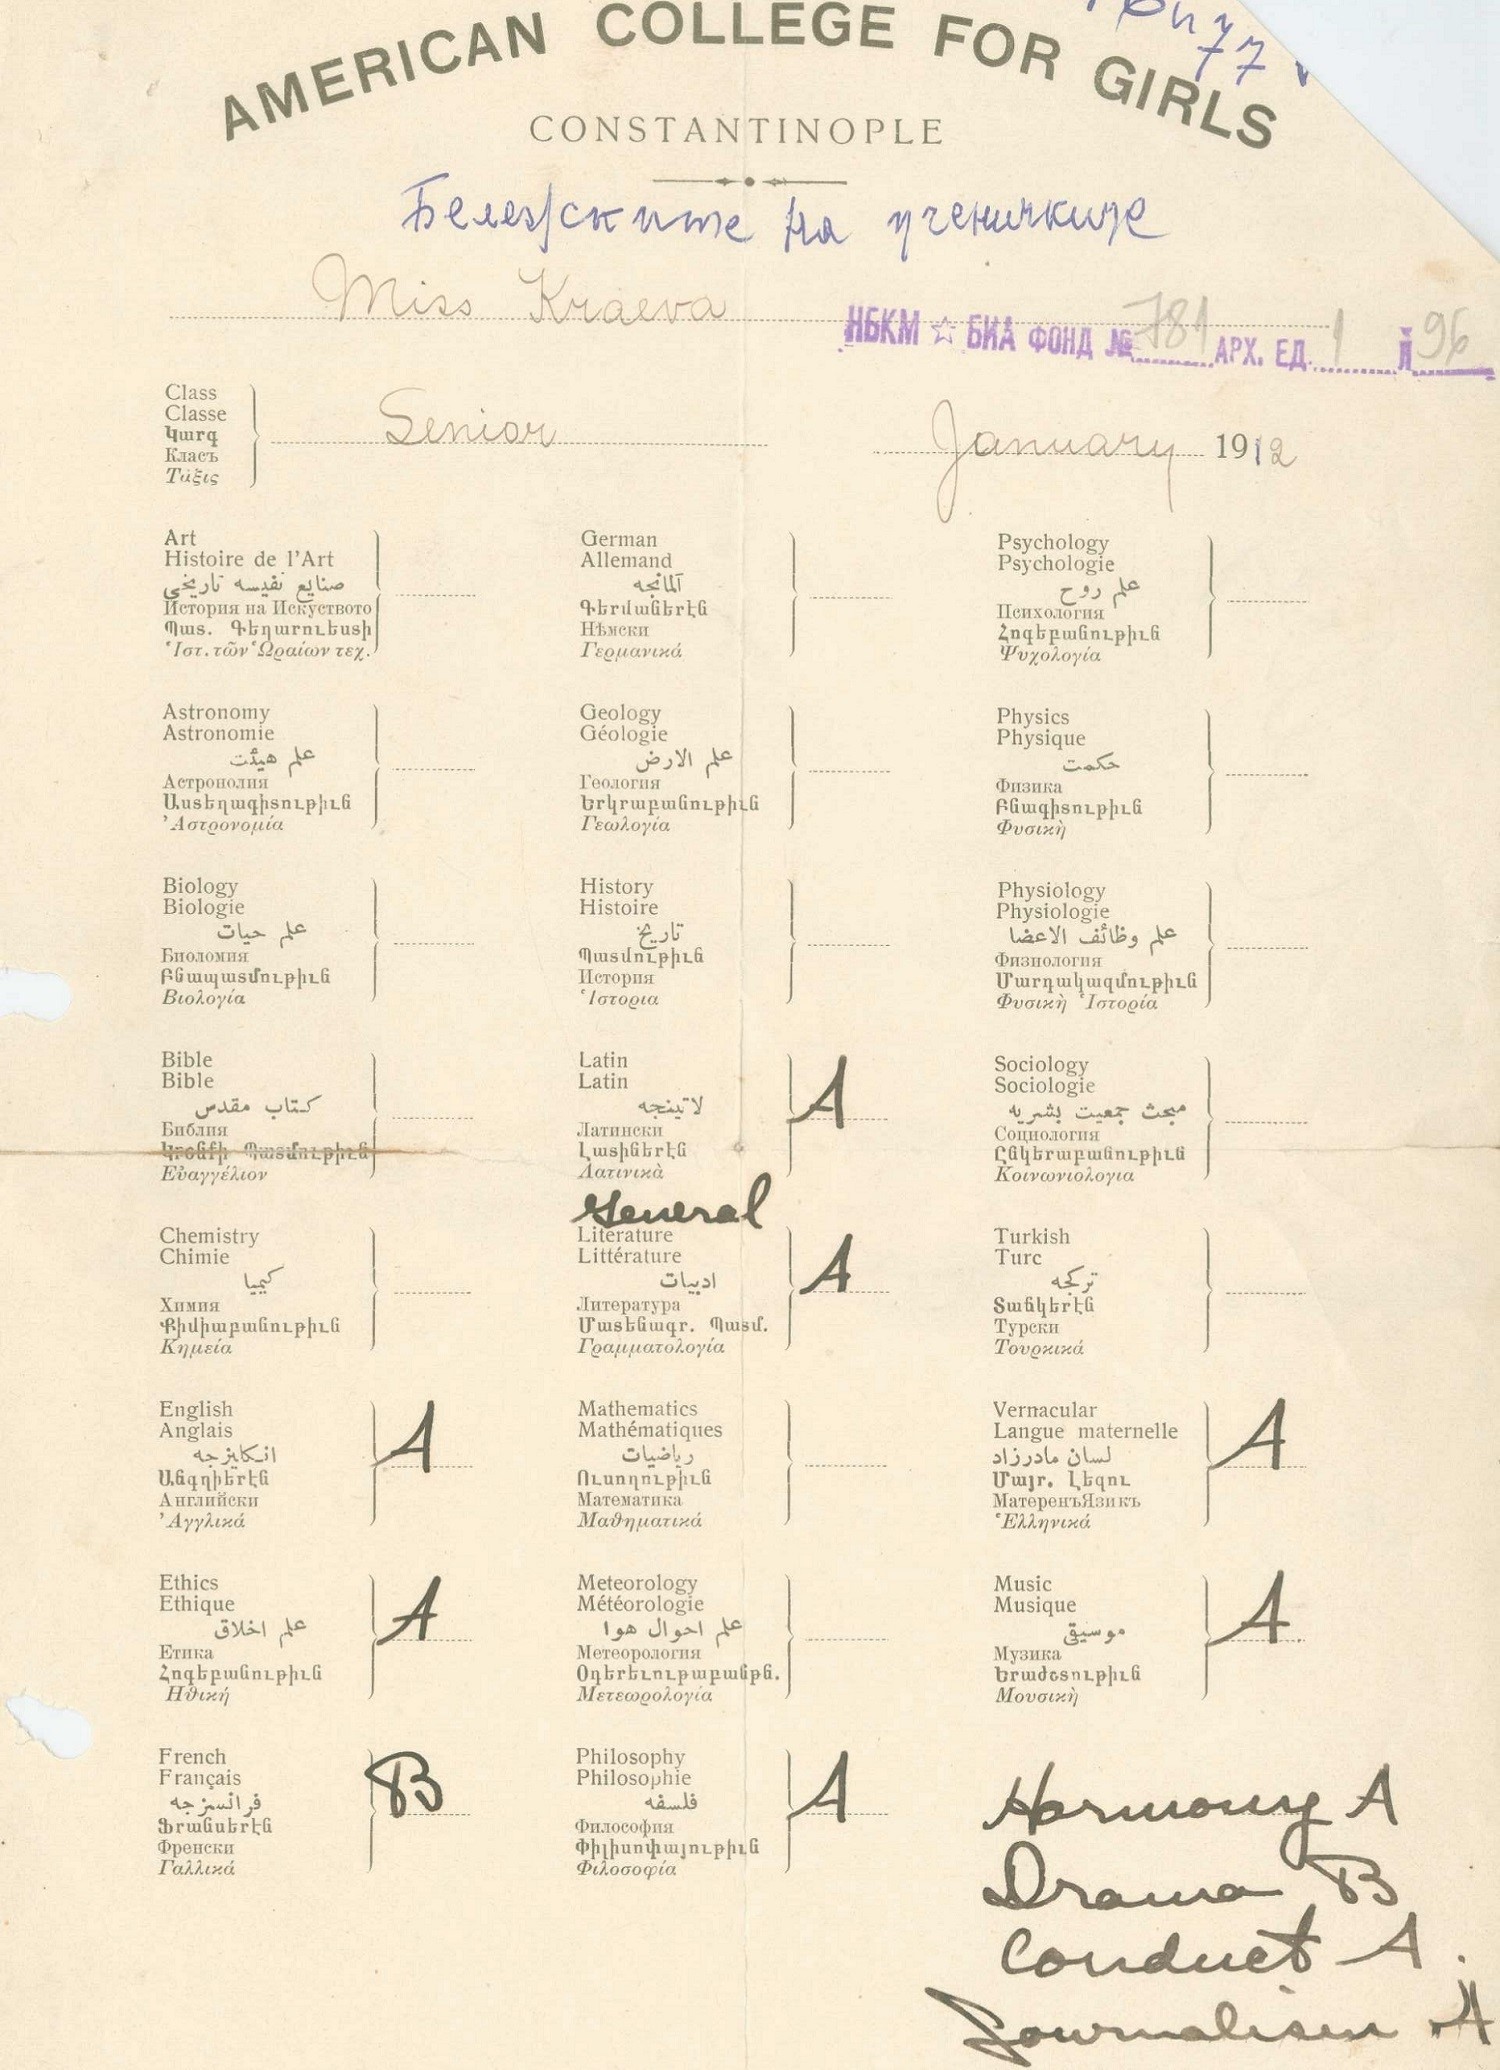 AMERICAN COLLEGE FOR GIRLS
CONSTANTINOPLE
Бележските на ученичките
Miss Kraeva
НБКМ ☆ БИА ФОНД № 781 АРХ. ЕД. 1 Л 96
Class
Classe
Կարգ
Класъ
Τάξις
Senior
January 1912
Art
Histoire de l'Art
صنايع نفيسه تاريخى
История на Искуството
Պատ. Գեղարուեստի
Ἱστ. τῶν Ὡραίων τεχ.
German
Allemand
آلمانجه
Գերմաներէն
Нѣмски
Γερμανικά
Psychology
Psychologie
علم روح
Психология
Հոգեբանութիւն
Ψυχολογία
Astronomy
Astronomie
علم هيئت
Астрономия
Աստեղագիտութիւն
Ἀστρονομία
Geology
Géologie
علم الارض
Геология
Երկրաբանութիւն
Γεωλογία
Physics
Physique
حكمت
Физика
Բնագիտութիւն
Φυσικὴ
Biology
Biologie
علم حيات
Биоломия
Բնապատմութիւն
Βιολογία
History
Histoire
تاريخ
Պատմութիւն
История
Ἱστορια
Physiology
Physiologie
علم وظائف الاعضا
Физиология
Մարդակազմութիւն
Φυσικὴ Ἱστορία
Bible
Bible
كتاب مقدس
Библия
Կրօնքի Պատմութիւն
Εὐαγγέλιον
Latin
Latin
لاتينجه
Латински
Լատիներէն
Λατινικὰ
A
Sociology
Sociologie
مبحث جمعيت بشريه
Социология
Ընկերաբանութիւն
Κοινωνιολογια
Chemistry
Chimie
كيميا
Химия
Քիմիաբանութիւն
Κημεία
General
Literature
Littérature
ادبيات
Литература
Մատենագր. Պատմ.
Γραμματολογία
A
Turkish
Turc
تركجه
Տաճկերէն
Турски
Τουρκικά
English
Anglais
انكليزجه
Անգղիերէն
Английски
Ἀγγλικά
A
Mathematics
Mathématiques
رياضيات
Ուսողութիւն
Математика
Μαθηματικά
Vernacular
Langue maternelle
لسان مادرزاد
Մայր. Լեզու
МатеренъЯзикъ
Ἑλληνικά
A
Ethics
Ethique
علم اخلاق
Етика
Հոգեբանութիւն
Ηθική
A
Meteorology
Météorologie
علم احوال هوا
Метеорология
Օդերեւութաբանթն.
Μετεωρολογία
Music
Musique
موسيقى
Музика
Երաժշտութիւն
Μουσικὴ
A
French
Français
فرانسزجه
Ֆրանսերէն
Френски
Γαλλικά
B
Philosophy
Philosophie
فلسفه
Философия
Փիլիսոփայութիւն
Φιλοσοφία
A
Harmony A
Drama B
Conduct A.
Journalism A